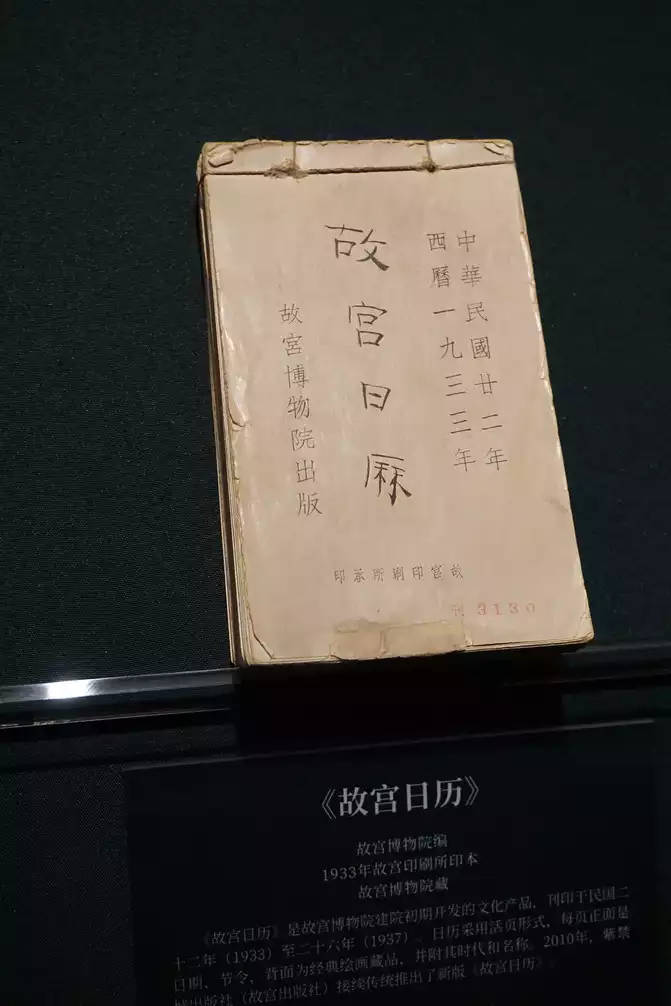 中華民國廿二年
西曆一九三三年
故宫日厤
故宮博物院出版
故宫印刷所承印
3130
《故宫日历》
故宫博物院编
1933年故宫印刷所印本
故宫博物院藏
《故宫日历》是故宫博物院建院初期开发的文化产品，刊印于民国二
十二年（1933）至二十六年（1937）。日历采用活页形式，每页正面是
日期、节令，背面为经典绘画藏品，并附其时代和名称。2010年，紫禁
城出版社（故宫出版社）接续传统推出了新版《故宫日历》。